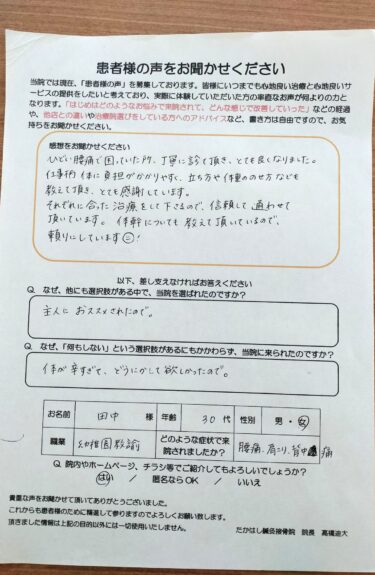 患者様の声をお聞かせください
当院では現在、「患者様の声」を募集しております。皆様にいつまでも心地良い治療と心地良いサ
ービスの提供をしたいと考えており、実際に体験していただいた方の率直なお声が何よりの力と
なります。「はじめはどのようなお悩みで来院されて、どんな感じで改善していった」などの経過
や、他店との違いや治療院選びをしている方へのアドバイスなど、書き方は自由ですので、お気
持ちをお聞かせください。
感想をお聞かせください
ひどい腰痛で困っていた所、丁寧に診て頂き、とても良くなりました。
仕事柄 体に負担がかかりやすく、立ち方や体重ののせ方なども
教えて頂き、とても感謝しています。
それぞれに合った治療をして下さるので、信頼して通わせて
頂いています。体幹についても教えて頂いているので、
頼りにしています
以下、差し支えなければお答えください
Q. なぜ、他にも選択肢がある中で、当院を選ばれたのですか？
主人におススメされたので。
Q. なぜ、「何もしない」という選択肢があるにもかかわらず、当院に来られたのですか？
体が辛すぎて、どうにかして欲しかったので。
お名前 田中 様 年齢 30代 性別 男・女
職業 幼稚園教諭 どのような症状で来院されましたか？ 腰痛、肩こり、背中痛
Q. 院内やホームページ、チラシ等でご紹介してもよろしいでしょうか？
はい ／ 匿名ならOK ／ いいえ
貴重な声をお聞かせて頂いてありがとうございました。
これからも患者様のために精進して参りますのでよろしくお願い致します。
頂きました情報は上記の目的以外には一切使用いたしません。
たかはし鍼灸接骨院 院長 高橋迪大